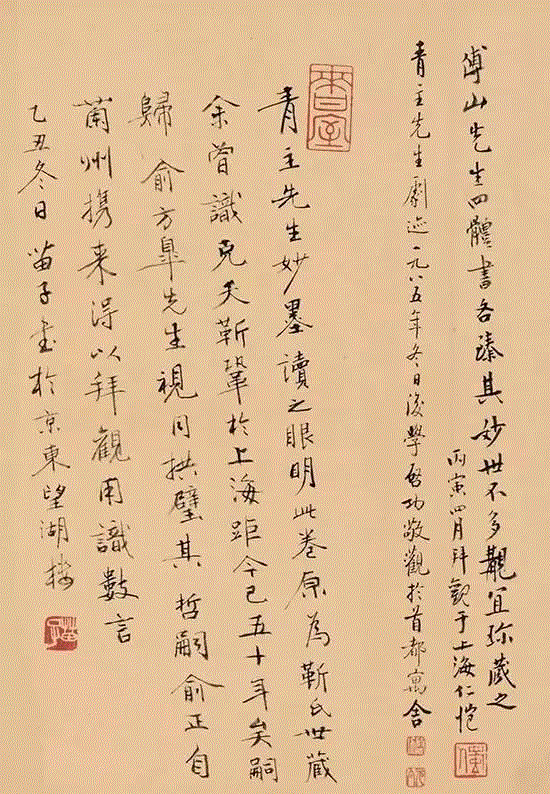 傅山先生四體書各臻其妙世不多覯宜珍藏之
丙寅四月拜觀于上海仁愷
青主先生劇迹一九八五年冬日後學啓功敬觀於首都寓舍
青主先生妙墨讀之眼明此卷原為靳氏世藏
余曾識克天靳鞏於上海距今已五十年矣嗣
歸俞方皐先生視同拱璧其哲嗣俞正自
蘭州攜来得以拜觀用識數言
乙丑冬日苗子書於京東望湖樓